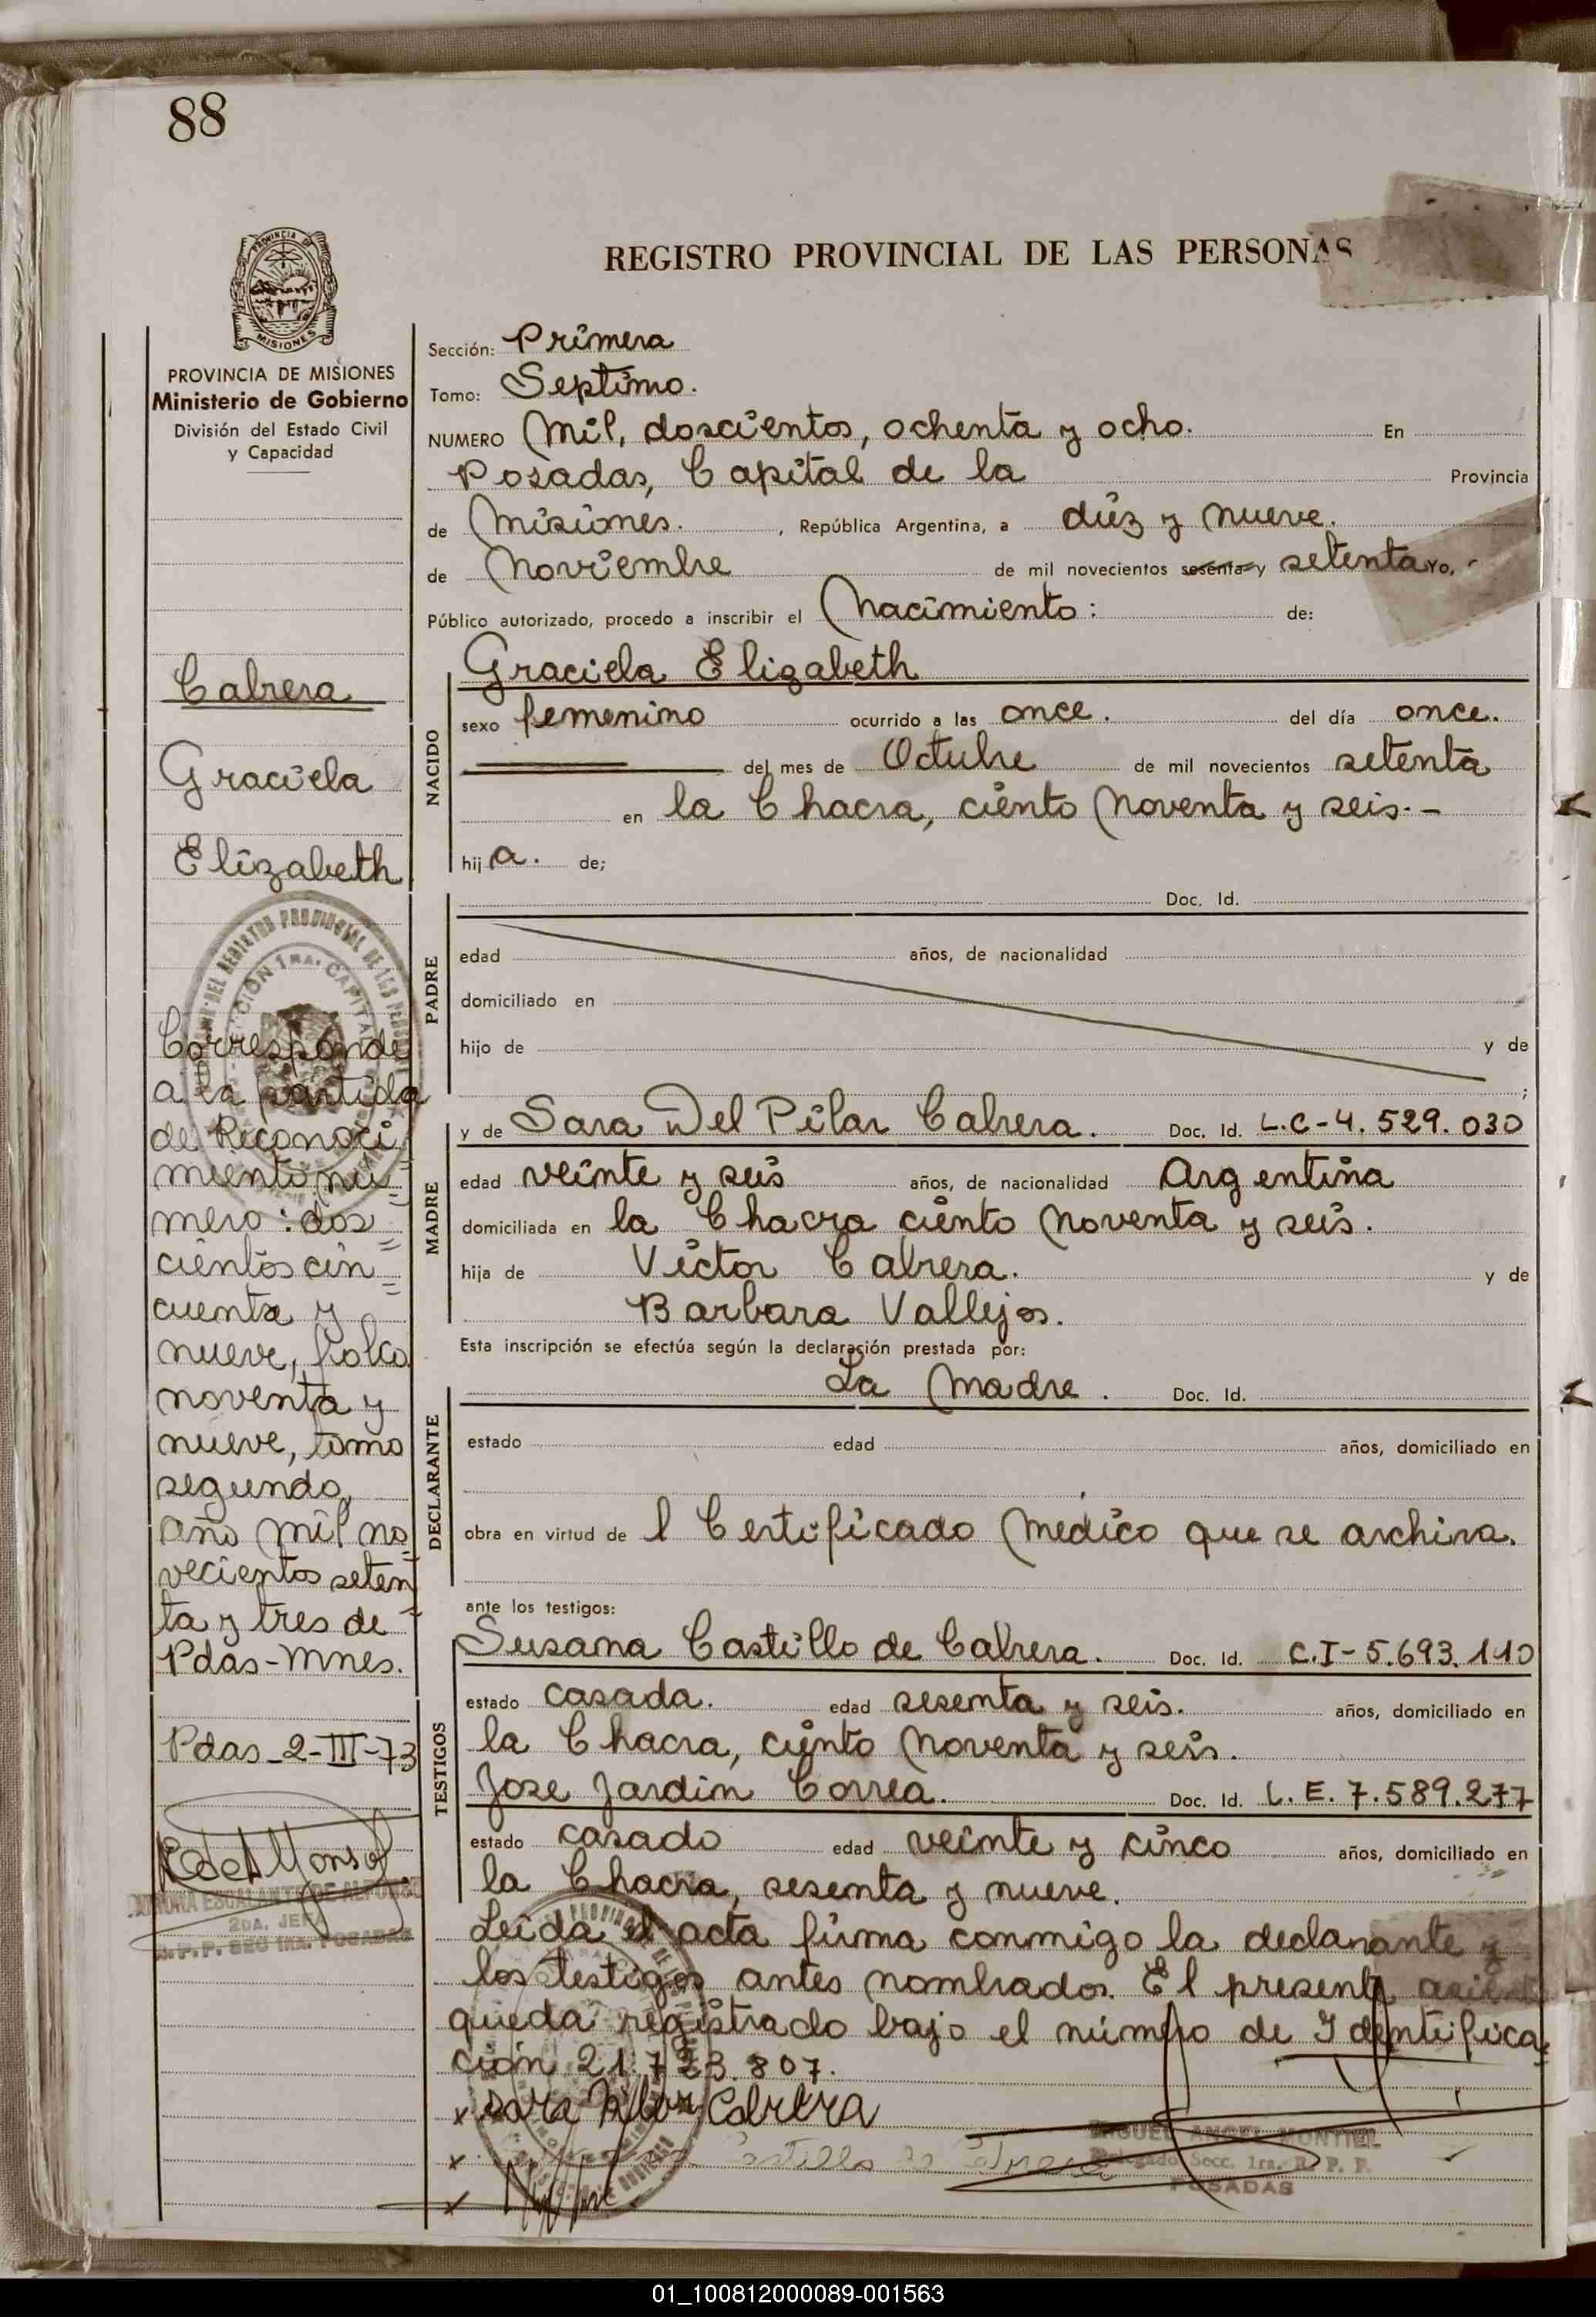 88
PROVINCIA DE
MISIONES
REGISTRO PROVINCIAL DE LAS PERSONAS
PROVINCIA DE MISIONES
Ministerio de Gobierno
División del Estado Civil
y Capacidad
Cabrera
Graciela
Elizabeth
Corresponde
a la partida
de Reconoci
miento nú=
mero: dos=
cientos cin=
cuenta y
nueve, folio
noventa y
nueve, tomo
segundo,
año mil no=
vecientos seten
ta y tres de
Pdas-Mnes.
Pdas-2-III-73
ESCALANTE DE ALFONSO
2DA. JEFA
R.P.P. SEC 1RA. POSADAS
Sección: Primera
Tomo: Septimo.
NUMERO Mil, doscientos, ochenta y ocho. En
Posadas, Capital de la Provincia
de Misiones. , República Argentina, a diez y nueve.
de Noviembre de mil novecientos sesenta y setenta Yo,
Público autorizado, procedo a inscribir el Nacimiento: de:
NACIDO
Graciela Elizabeth
sexo femenino ocurrido a las once. del día once.
del mes de Octubre de mil novecientos setenta
en la Chacra, ciento noventa y seis.-
hija. de;
PADRE
Doc. Id.
edad años, de nacionalidad
domiciliado en
hijo de y de
;
MADRE
y de Sara Del Pilar Cabrera. Doc. Id. L.C-4.529.030
edad veinte y seis años, de nacionalidad Argentina
domiciliada en la Chacra ciento noventa y seis.
hija de Victor Cabrera. y de
Barbara Vallejos.
Esta inscripción se efectúa según la declaración prestada por:
DECLARANTE
La Madre. Doc. Id.
estado edad años, domiciliado en
obra en virtud de l Certificado Medico que se archiva.
ante los testigos:
TESTIGOS
Susana Castillo de Cabrera. Doc. Id. C.I-5.693.110
estado casada. edad sesenta y seis. años, domiciliado en
la Chacra, ciento noventa y seis.
Jose Jardin Correa. Doc. Id. L.E. 7.589.277
estado casado edad veinte y cinco años, domiciliado en
la Chacra, sesenta y nueve.
Leida el acta firma conmigo la declarante y
los testigos antes nombrados. El presente asiento
queda registrado bajo el número de Identifica=
ción 21.723.807.
x Sara Pilar Cabrera
x Castillo de Cabrera
x
MIGUEL ANGEL MONTIEL
Delegado Secc. 1ra. R. P. P.
POSADAS
01_100812000089-001563